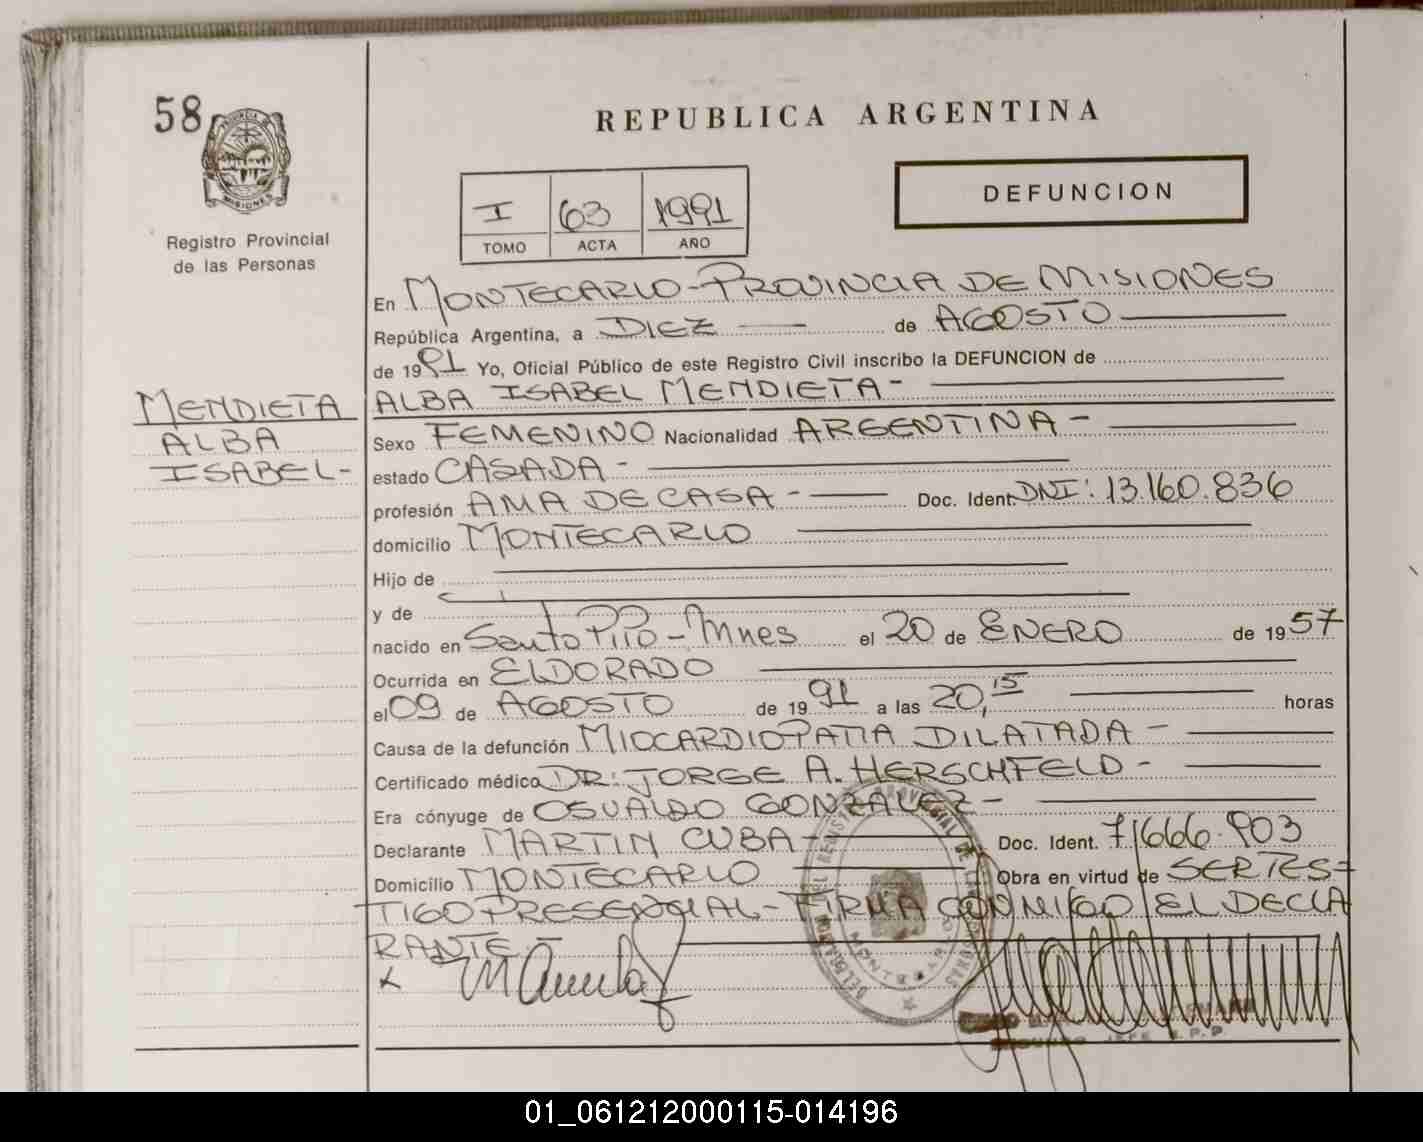 58
PROVINCIA DE
MISIONES
Registro Provincial
de las Personas
REPUBLICA ARGENTINA
DEFUNCION
I 63 1991
TOMO ACTA AÑO
En MONTECARLO-PROVINCIA DE MISIONES
República Argentina, a DIEZ — de AGOSTO
de 1991 Yo, Oficial Público de este Registro Civil inscribo la DEFUNCION de
MENDIETA
ALBA
ISABEL-
ALBA ISABEL MENDIETA-
Sexo FEMENINO Nacionalidad ARGENTINA-
estado CASADA-
profesión AMA DE CASA- Doc. Ident. DNI: 13.160.836
domicilio MONTECARLO
Hijo de
y de
nacido en Santo Pipo-Mnes el 20 de ENERO de 1957
Ocurrida en ELDORADO
el 09 de AGOSTO de 1991 a las 20,15 horas
Causa de la defunción MIOCARDIOPATIA DILATADA-
Certificado médico DR: JORGE A. HERSCHFELD-
Era cónyuge de OSVALDO GONZALEZ-
Declarante MARTIN CUBA- Doc. Ident. 7.666.903
Domicilio MONTECARLO Obra en virtud de SER TES-
TIGO PRESENCIAL-FIRMA CONMIGO EL DECLA
RANTE-
MONTECARLO
JEFE R.P.P.
01_061212000115-014196